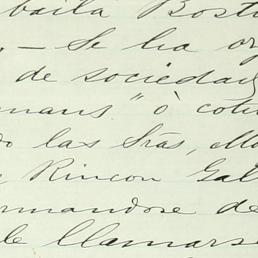 baila Bost
, — Se ha or
de sociedad
mans" ò coti
do las Srãs, Ma
Rincon Gal
rmandose de
le llamarse